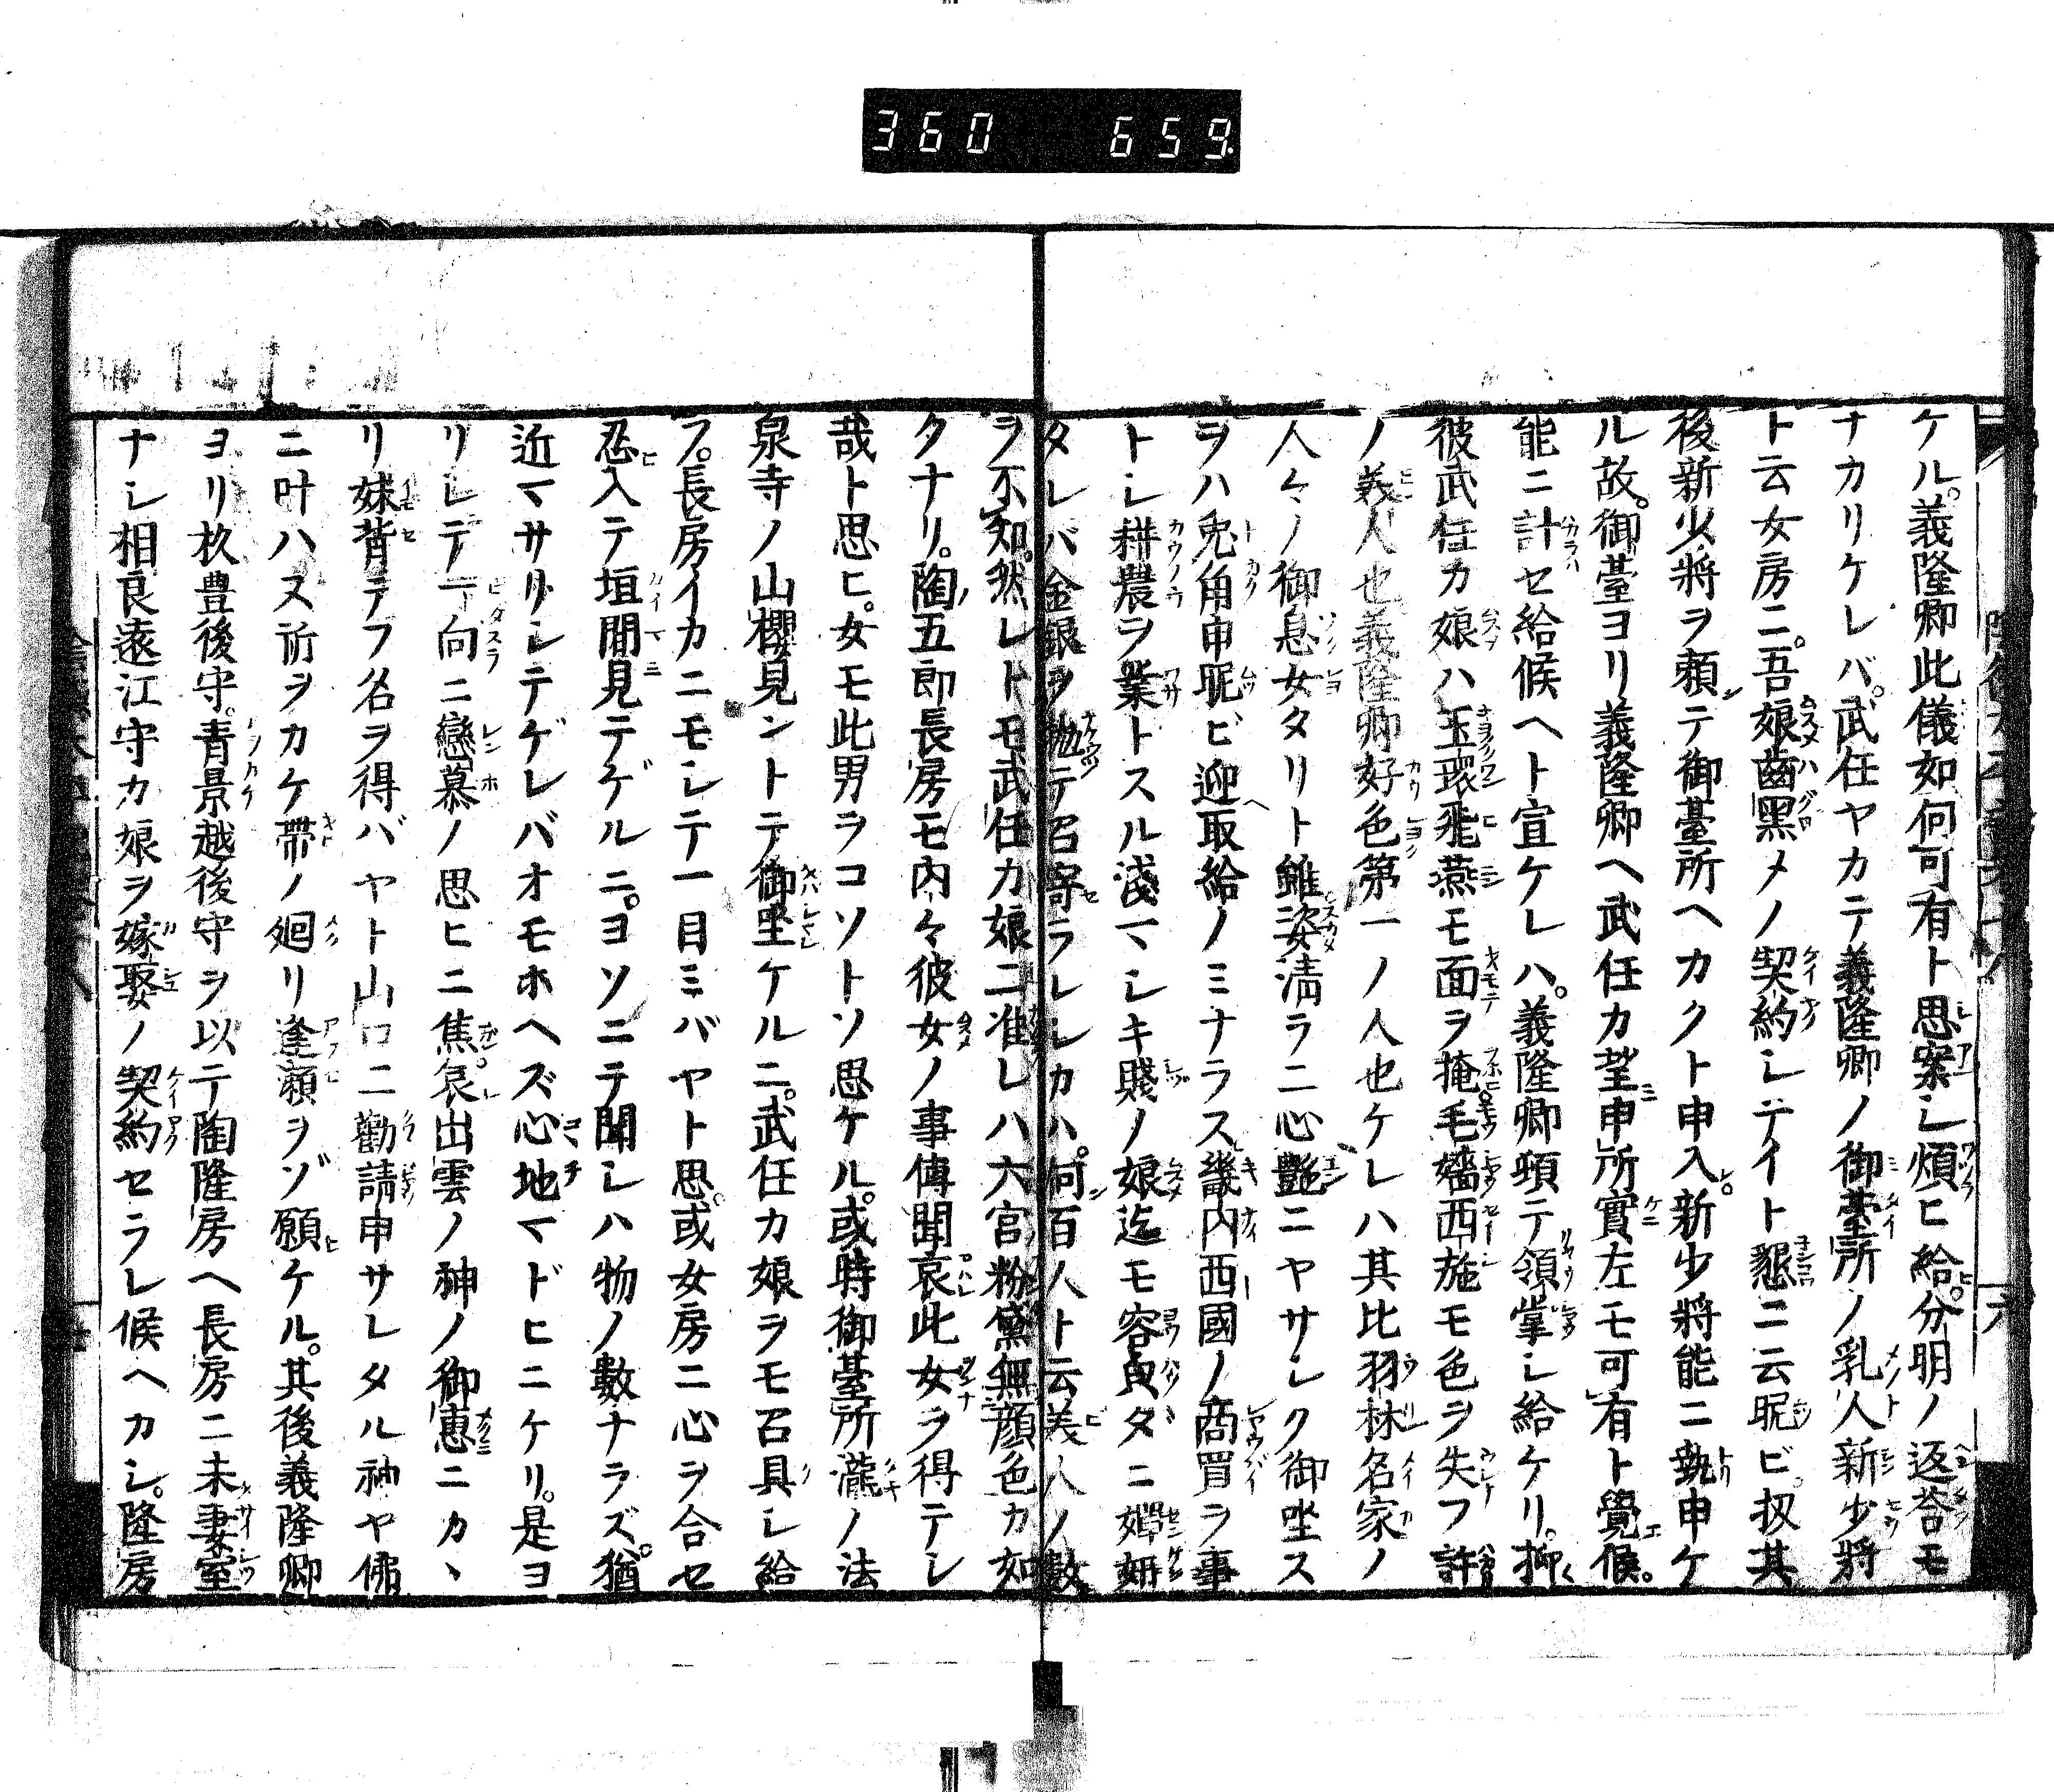 360 659
ケル。義隆卿此儀如何可有ト思案シ煩ヒ給。分明ノ返荅モ
ナカリケレバ。武任ヤカテ義隆卿ノ御臺所ノ乳人新少將
ト云女房ニ。吾娘齒黑メノ契約シテイト懇ニ云昵ビ。扨其
後新少將ヲ頼テ御臺所ヘカクト申入。新少將能ニ執申ケ
ル故。御臺ヨリ義隆卿ヘ武任カ望申所實左モ可有ト覺候。
能ニ計セ給候ヘト宣ケレハ。義隆卿頓テ領掌シ給ケリ。抑
彼武任カ娘ハ玉環飛燕モ面ヲ掩毛嬙西施モ色ヲ失フ許
ノ美人也義隆卿好色第一ノ人也ケレハ其比羽林名家ノ
人々ノ御息女タリト雖姿淸ラニ心艷ニヤサシク御坐ス
ヲハ兎角申昵ビ迎取給ノミナラス畿内西國ノ商買ヲ事
トシ耕農ヲ業トスル淺マシキ賤ノ娘迄モ容皃ダニ嬋妍
タレバ金銀ヲ抛テ召寄ラレシカハ。何百人ト云美人ノ數
ヲ不知。然レトモ武任カ娘ニ准レハ六宮粉黛無顔色カ如
クナリ。陶五郎長房モ内々彼女ノ事傳聞哀此女ヲ得テシ
哉ト思ヒ。女モ此男ヲコソトソ思ケル。或時御臺所瀧ノ法
泉寺ノ山櫻見ントテ御坐ケルニ。武任カ娘ヲモ召具シ給
フ。長房イカニモシテ一目ミバヤト思。或女房ニ心ヲ合セ
忍入テ垣間見テゲルニ。ヨソニテ聞シハ物ノ數ナラズ。猶
近マサリシテゲレバオモホヘズ心地マドヒニケリ。是ヨ
リシテ一向ニ戀慕ノ思ヒニ焦哀出雲ノ神ノ御惠ニカヽ
リ妹背テフ名ヲ得バヤト山口ニ勸請申サレタル神ヤ佛
ニ叶ハヌ祈ヲカケ帶ノ廻リ逢瀬ヲゾ願ケル。其後義隆卿
ヨリ杦豊後守。青景越後守ヲ以テ陶隆房ヘ長房ニ未妻室
ナシ相良遠江守カ娘ヲ嫁娶ノ契約セラレ候ヘカシ。隆房